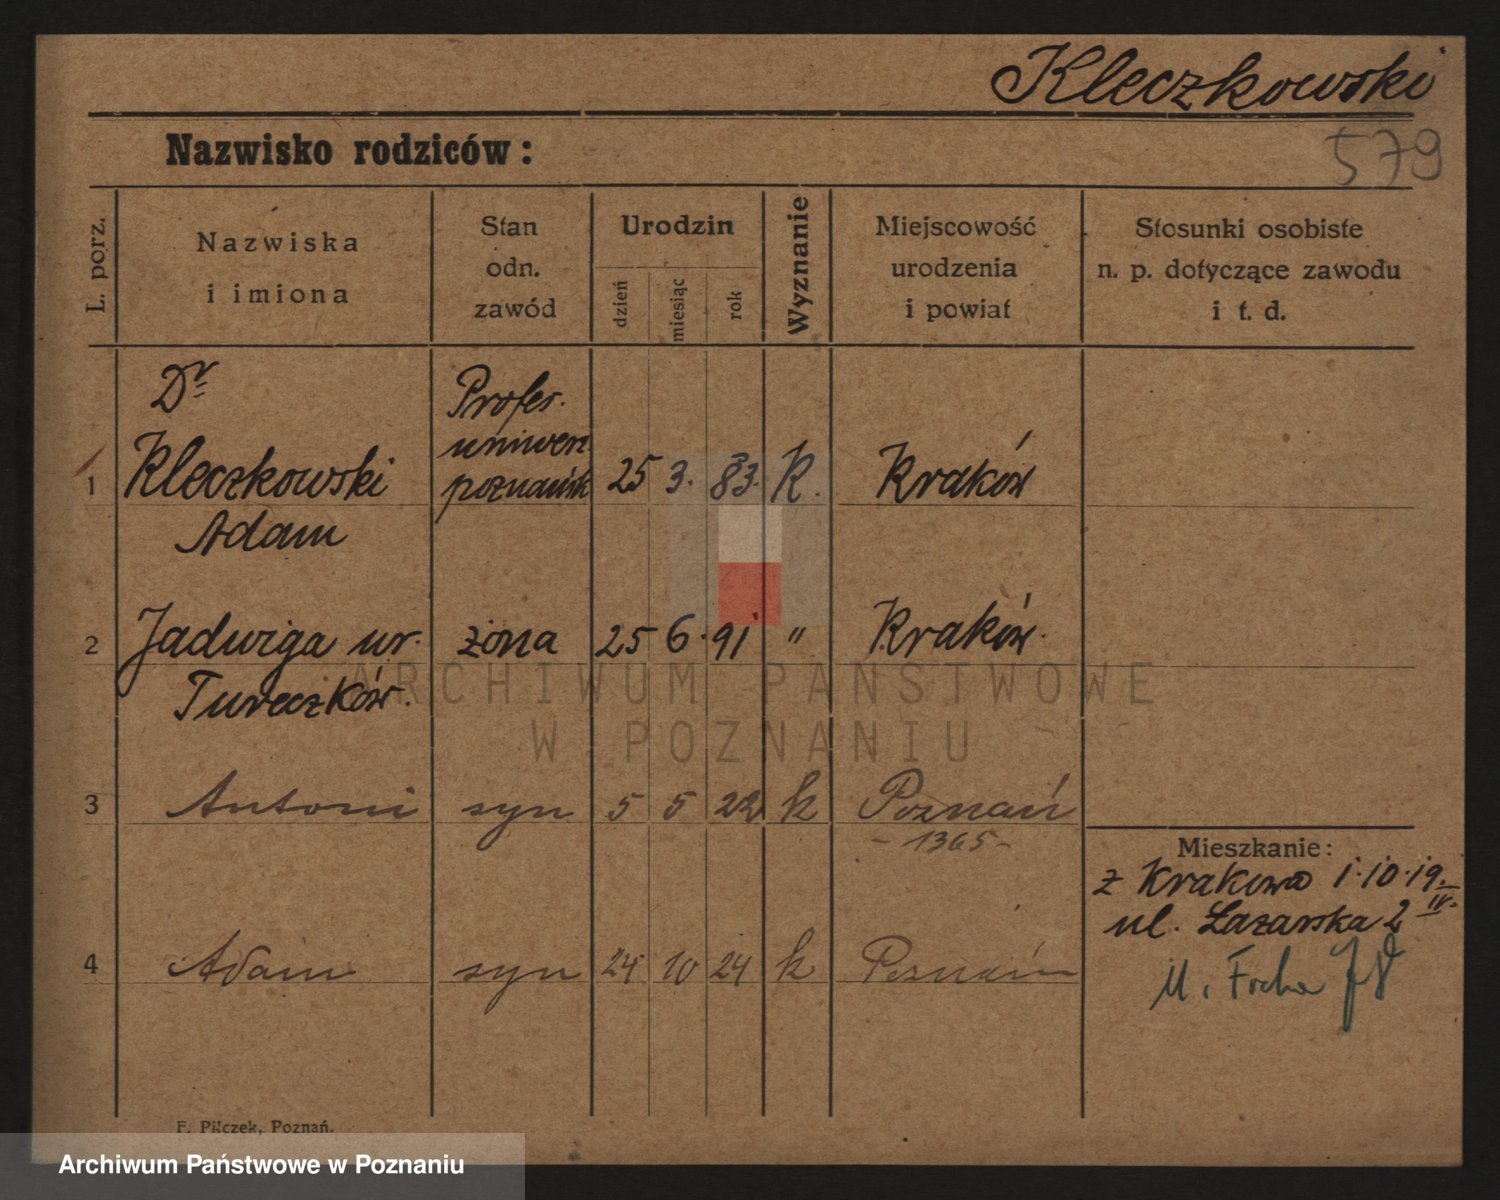 Kleczkowski
579
Nazwisko rodziców:
L. porz.
Nazwiska
i imiona
Stan
odn.
zawód
Urodzin
dzień
miesiąc
rok
Wyznanie
Miejscowość
urodzenia
i powiat
Stosunki osobiste
n. p. dotyczące zawodu
i t. d.
Dr
Profes.
uniwers.
1 Kleczkowski poznańsk 25 3. 83. K. Kraków
Adam
2 Jadwiga ur. żona 25 6. 91 " Kraków.
Tureczków.
ARCHIWUM PAŃSTWOWE
W POZNANIU
3 Antoni syn 5 5 22 k Poznań
- 1365 -
Mieszkanie:
z Krakowa 1.10.19.
ul. Łazarska 2 IV.
4 Adam syn 24 10 24 k Poznań
M. Focha
F. Pilczek, Poznań.
Archiwum Państwowe w Poznaniu